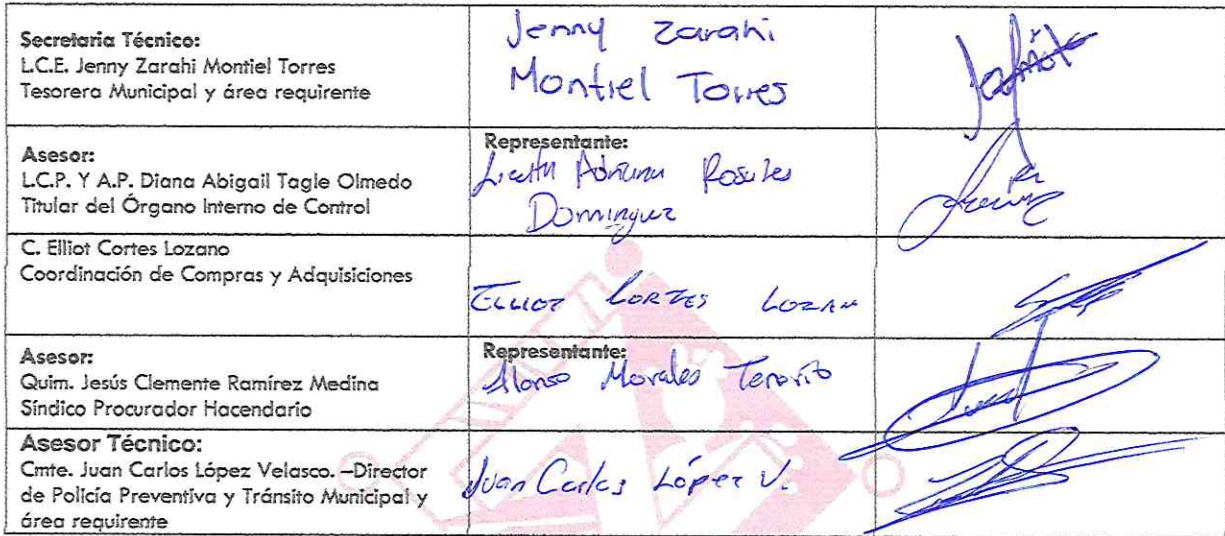 Secretaria Técnico:
L.C.E. Jenny Zarahi Montiel Torres
Tesorera Municipal y área requirente
Jenny Zarahi
Montiel Torres
Asesor:
L.C.P. Y A.P. Diana Abigail Tagle Olmedo
Titular del Órgano Interno de Control
Representante:
Adriana Rosales
Dominguez
C. Elliot Cortes Lozano
Coordinación de Compras y Adquisiciones
Elliot Cortes Lozano
Asesor:
Quim. Jesús Clemente Ramírez Medina
Síndico Procurador Hacendario
Representante:
Alonso Morales
Asesor Técnico:
Cmte. Juan Carlos López Velasco. –Director
de Policía Preventiva y Tránsito Municipal y
área requirente
Juan Carlos López V.